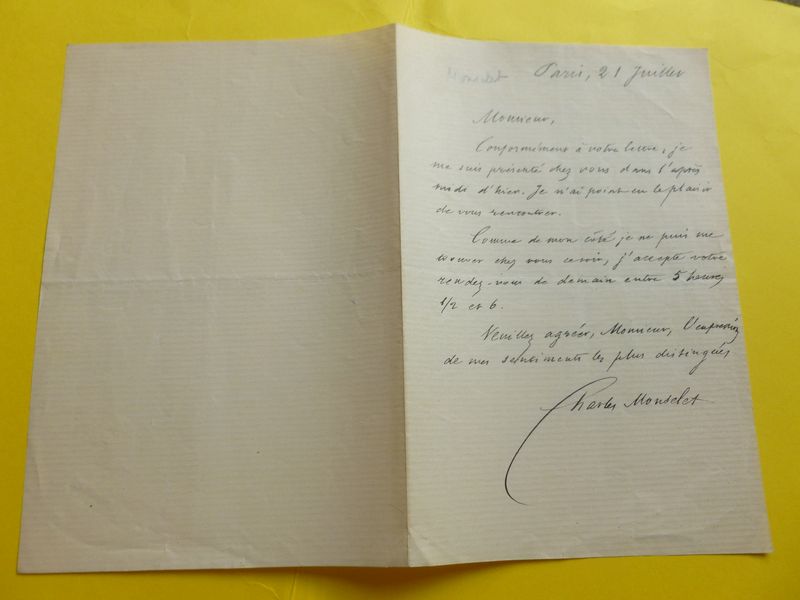 Monselet
Paris, 21 Juillet
Monsieur,
Conformément à votre lettre, je
me suis présenté chez vous dans l'après
midi d'hier. Je n'ai point eu le plaisir
de vous rencontrer.
Comme de mon côté je ne puis me
trouver chez vous ce soir, j'accepte votre
rendez-vous de demain entre 5 heures
1/2 et 6.
Veuillez agréer, Monsieur,
de mes sentiments les plus distingués
Charles Monselet